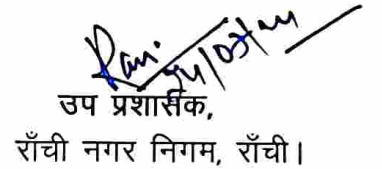 उप प्रशासक,
राँची नगर निगम, राँची।